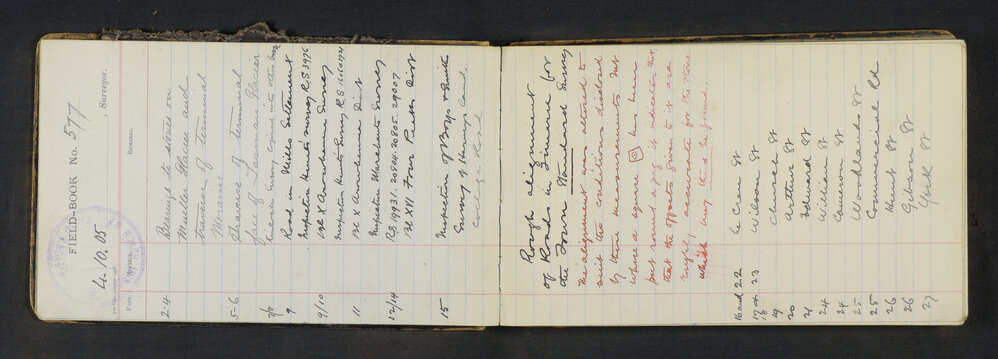 FIELD-BOOK No. 577
4.10.05
Surveyor.
PAGE.
REMARKS.
2-4 Bearings to stones on
Mueller Glacier and
traverse of terminal
Moraine
5-6 Traverse of terminal
face of Tasman Glacier
7/8
9 Road in Mills Settlement
9/10 Inspection Hunt's survey R.S. 3976
Blk X Arowhenua Survey
Inspection Hunt's Survey R.S.
11 Blk X Arowhenua Dist
12/14 Inspection Survey
RS 19931. 20804. 20805. 29007
Blk XVI Four Peaks Dist
15 Inspection of Boys & Smith
Survey of Harveys Land
College Road
Rough alignment
of Roads in Timaru for
the Town Standard Survey
The alignment was altered to
suit the conditions disclosed
by these measurements but
where a figure has been
put round a peg it indicates that
that the offsets given to it are
roughly accurate for the place
which they there be found.
16 and 22 Le Cren St
17 & 18 23 Wilson St
19 Church St
20 Arthur St
21 Edward St
24 William St
24 Cameron St
25 Woodlands St
25 Commercial Rd
26 Hunt St
26 Gibson St
27 York St